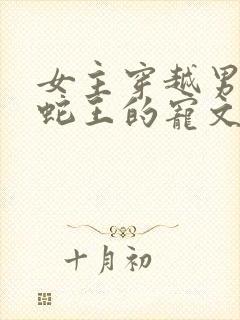 女主穿越男
蛇王的寵文
十月初